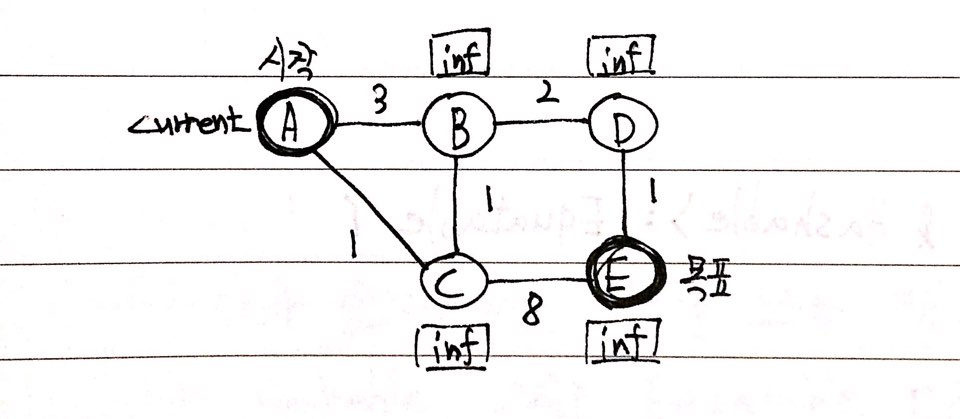 시작
inf
inf
current
A
3
B
2
D
1
1
1
C
8
E
목표
inf
inf